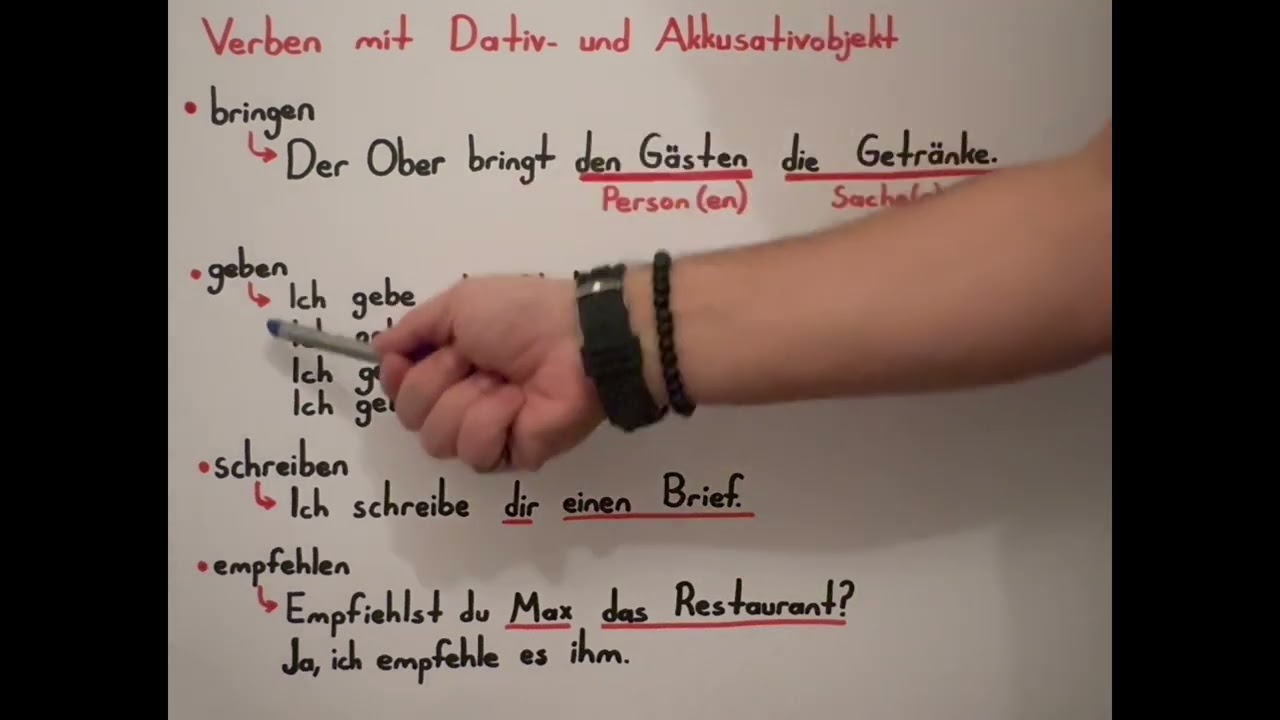 Verben mit Dativ- und Akkusativobjekt
• bringen
↳ Der Ober bringt den Gästen die Getränke.
Person(en)
• geben
↳ Ich gebe
Ich
Ich
• schreiben
↳ Ich schreibe dir einen Brief.
• empfehlen
↳ Empfiehlst du Max das Restaurant?
Ja, ich empfehle es ihm.